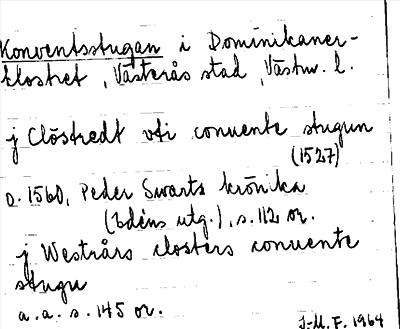 Konventsstugan i Dominikaner-
klostret, Västerås stad, Västm. l.
j Clöstredt vti conuente stugun
(1527)
o. 1560, Peder Swarts krönika
(Edéns utg.), s. 112 or.
j Westrårs closters conuente
stugu
a. a. s. 145 or.
I-M. F. 1964